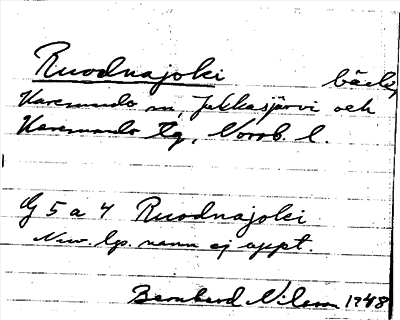 Ruodnajoki bäck,
Karesuando sn, Jukkasjärvi och
Karesuando tg, Norrb. l.
G 5 a 4 Ruodnajoki
Nuv. lp. namn ej uppt.
Bernhard Nilsson 1948